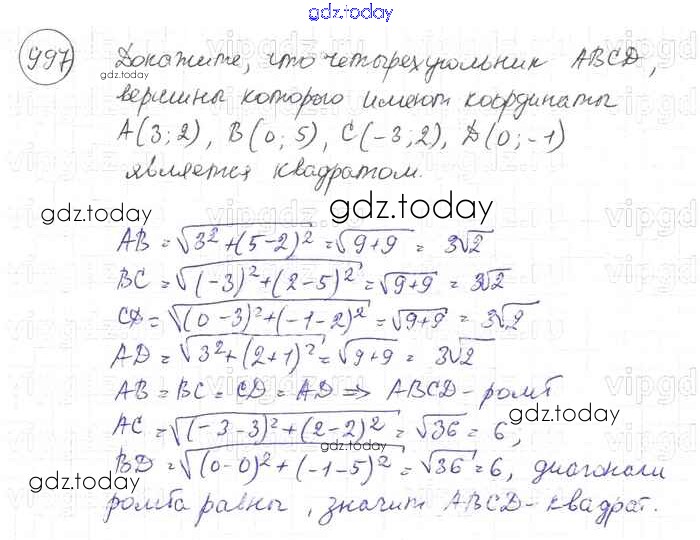 gdz.today
997
Докажите, что четырехугольник ABCD,
gdz.today
вершины которого имеют координаты
A(3; 2), B(0; 5), C(-3; 2), D(0; -1)
является квадратом.
gdz.today
gdz.today
AB = √(3² + (5-2)²) = √(9+9) = 3√2
BC = √((-3)² + (2-5)²) = √(9+9) = 3√2
CD = √((0-3)² + (-1-2)²) = √(9+9) = 3√2
AD = √(3² + (2+1)²) = √(9+9) = 3√2
AB = BC = CD = AD ⇒ ABCD - ромб
gdz.today
AC = √((-3-3)² + (2-2)²) = √36 = 6;
gdz.today
BD = √((0-0)² + (-1-5)²) = √36 = 6, диагонали
gdz.today
ромба равны, значит ABCD - квадрат.